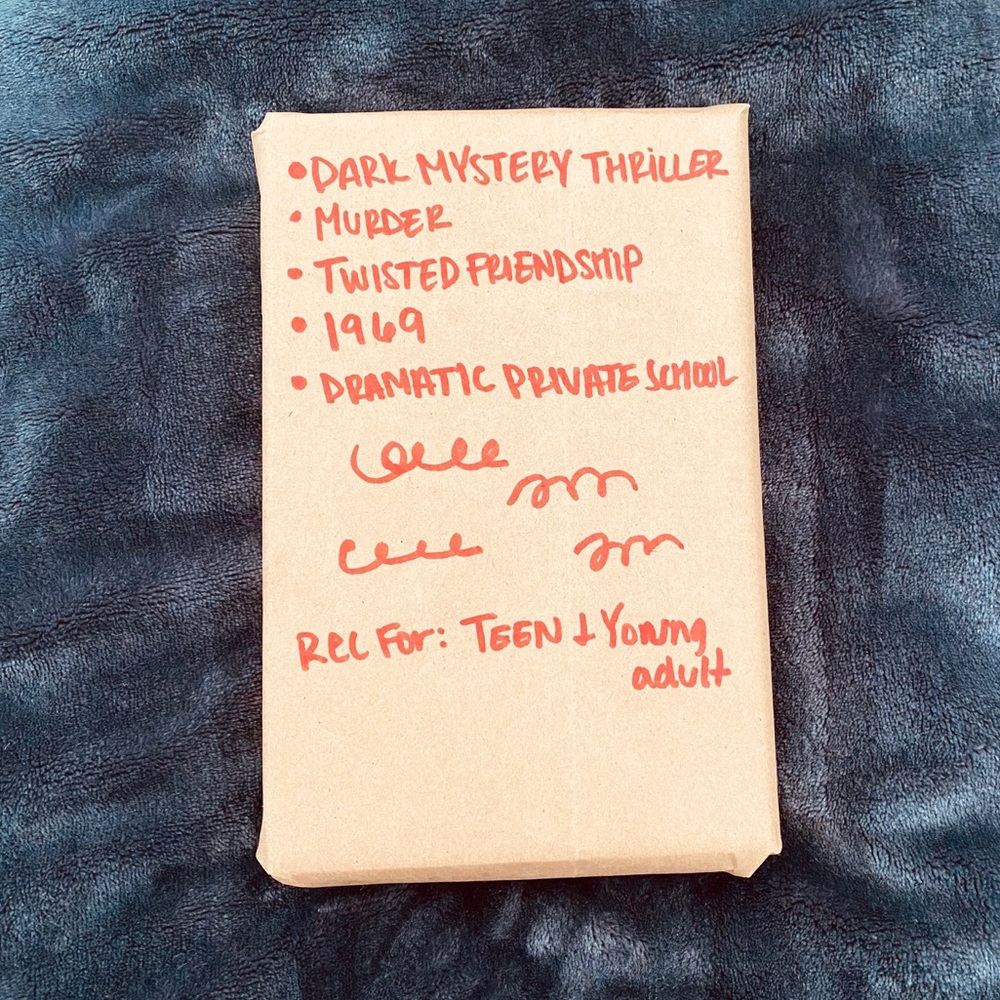 • DARK MYSTERY THRILLER
• MURDER
• TWISTED FRIENDSHIP
• 1969
• DRAMATIC PRIVATE SCHOOL
Rec For: TEEN + Young
adult